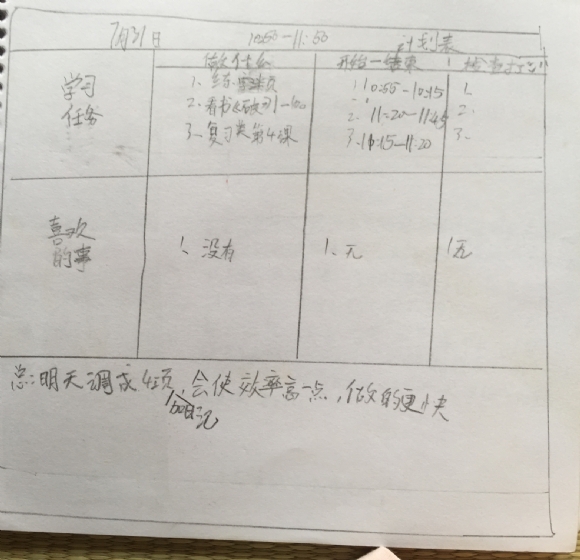 7月31日 10:50-11:50 计划表
做什么 开始-结束 检查打
学习任务
1、练 页 1、10:55-10:15 1.
2、看书 1-100 2、11:20-11:45 2.
3、复习 第4课 3、11:15-11:20 3.
喜欢的事 1、没有 1、无 1无
总:明天调成4项,会使效率高一点,做的更快
加日记